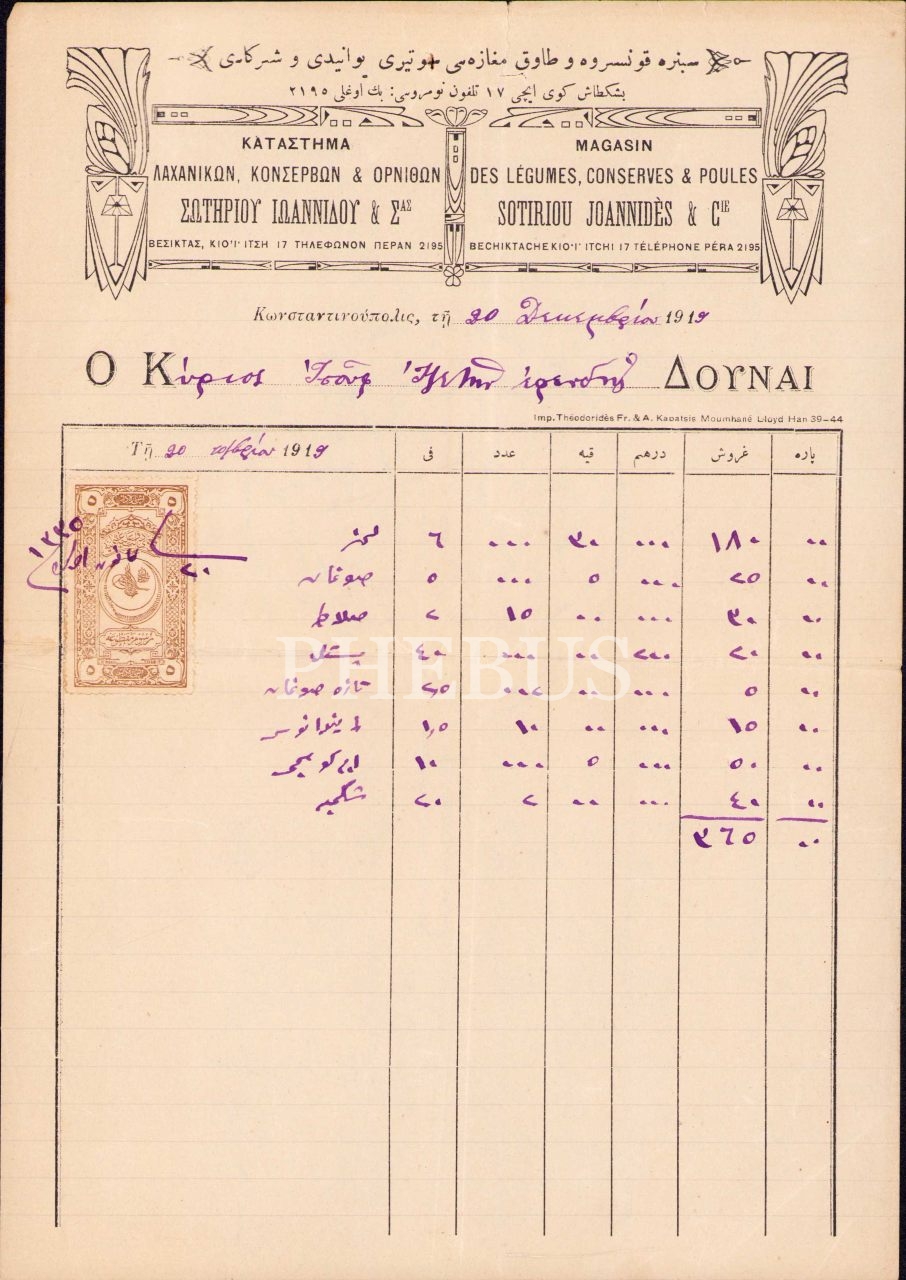 سبزه قونسروه و طاوق مغازه‌سی سوتیری یوانیدی و شرکاسی
بشكطاش كوی ایچی ١٧ تلفون نومروسی: بك اوغلی ٢١٩٥
ΚΑΤΑΣΤΗΜΑ
ΛΑΧΑΝΙΚΩΝ, ΚΟΝΣΕΡΒΩΝ & ΟΡΝΙΘΩΝ
ΣΩΤΗΡΙΟΥ ΙΩΑΝΝΙΔΟΥ & ΣΑΣ
ΒΕΣΙΚΤΑΣ, ΚΙΟ·Ι· ΙΤΣΗ 17 ΤΗΛΕΦΩΝΟΝ ΠΕΡΑΝ 2195
MAGASIN
DES LÉGUMES, CONSERVES & POULES
SOTIRIOU JOANNIDÈS & CIE
BECHIKTACHE KIO·I· ITCHI 17 TÉLÉPHONE PÉRA 2195
Κωνσταντινούπολις, τῇ 20 Δεκεμβρίου 1919
Ο Κύριος ΔΟΥΝΑΙ
Imp. Théodoridès Fr. & A. Kapatsis Moumhané Lloyd Han 39–44
Τῇ 20 1919 فی عدد قیه درهم غروش پاره
٦ ... ٣٠ ... ١٨٠ ..
صوغان ٥ ... ٥ ... ٢٥ ..
صلاطه ٢ ١٥ .. ... ٣٠ ..
٤٠ ... .. ٢٠٠ ٢٠ ..
تازه صوغان ... .. ... ٥ ..
١٠ .. ... ١٥ ..
١٠ ... ٥ ... ٥٠ ..
٢٠ ٢ .. ... ٤٠ ..
٣٦٥ ..
٥ ٥
٢٠ كانون اول ١٣٣٥
٥ ٥
PHEBUS